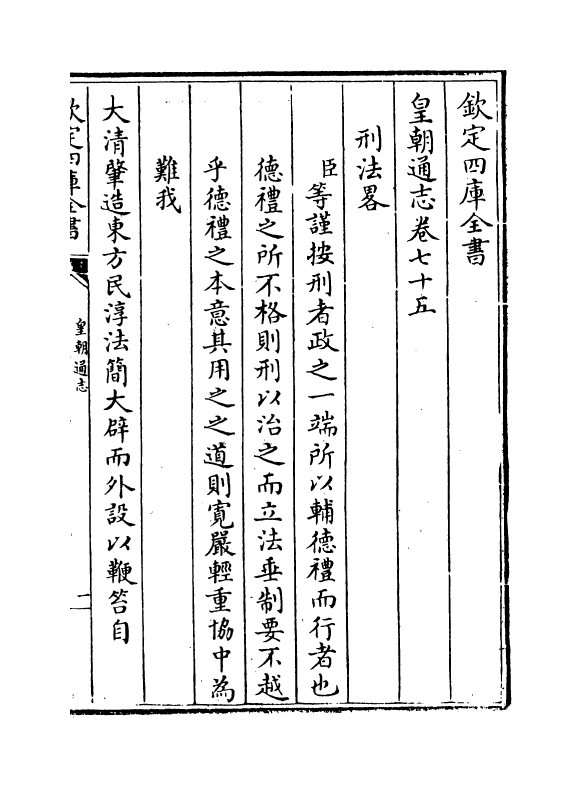 欽定四庫全書
皇朝通志卷七十五
刑法畧
臣等謹按刑者政之一端所以輔德禮而行者也
德禮之所不格則刑以治之而立法垂制要不越
乎德禮之本意其用之之道則寛嚴輕重協中為
難我
大清肇造東方民淳法簡大辟而外設以鞭笞自
欽定四庫全書
皇朝通志